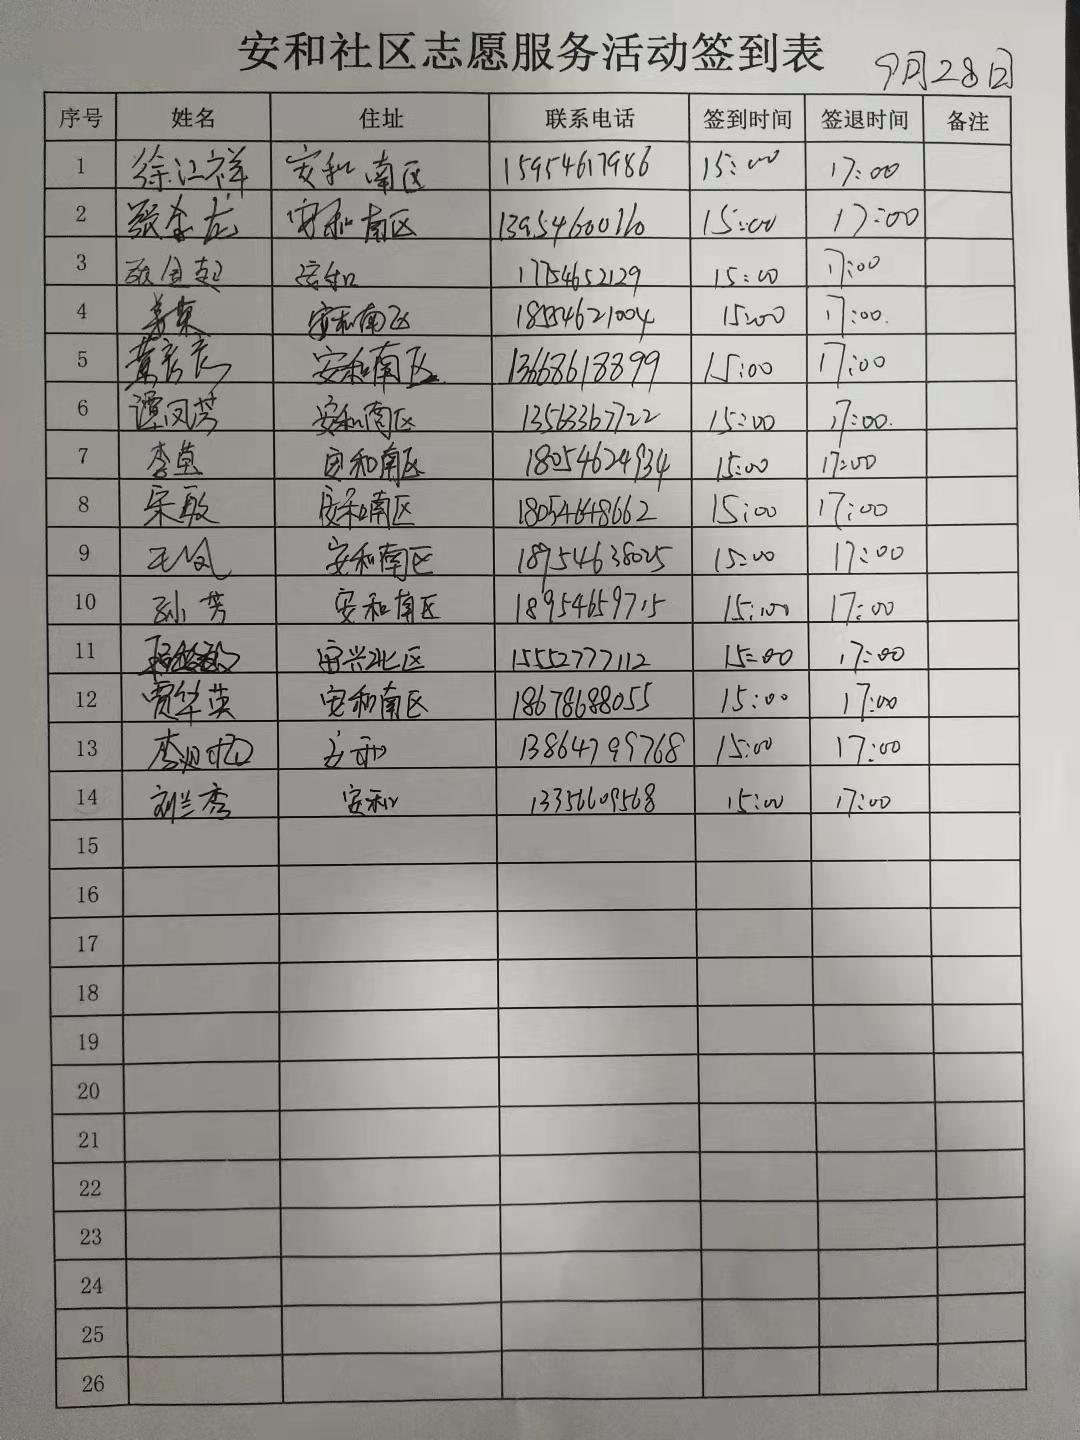 安和社区志愿服务活动签到表 9月28日
序号 姓名 住址 联系电话 签到时间 签退时间 备注
1 徐江祥 安和南区 15954617986 15:00 17:00
2 安和南区 13954600760 15:00 17:00
3 安和 17754652129 15:00 17:00
4 安和南区 18554621004 15:00 17:00
5 安和南区 13668618899 15:00 17:00
6 谭冈芳 安和南区 13563367722 15:00 17:00
7 安和南区 18054624934 15:00 17:00
8 宋敏 安和南区 18054648662 15:00 17:00
9 安和南区 18954638025 15:00 17:00
10 孙芳 安和南区 18954659715 15:00 17:00
11 安兴北区 15552777112 15:00 17:00
12 贾华英 安和南区 18678688055 15:00 17:00
13 安和 13864799768 15:00 17:00
14 刘兰秀 安和 13356609568 15:00 17:00
15
16
17
18
19
20
21
22
23
24
25
26